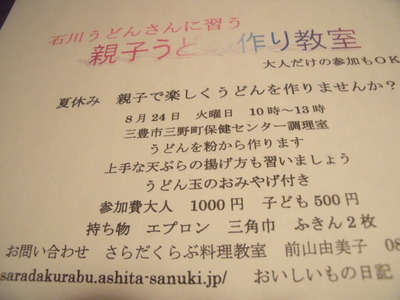 石川うどんさんに習う
親子うど 作り教室
大人だけの参加もOK
夏休み 親子で楽しくうどんを作りませんか?
8月24日 火曜日 10時～13時
三豊市三野町保健センター調理室
うどんを粉から作ります
上手な天ぷらの揚げ方も習いましょう
うどん玉のおみやげ付き
参加費大人 1000円 子ども500円
持ち物 エプロン 三角巾 ふきん2枚
お問い合わせ さらだくらぶ料理教室 前山由美子 08
saradakurabu.ashita-sanuki.jp/ おいしいもの日記